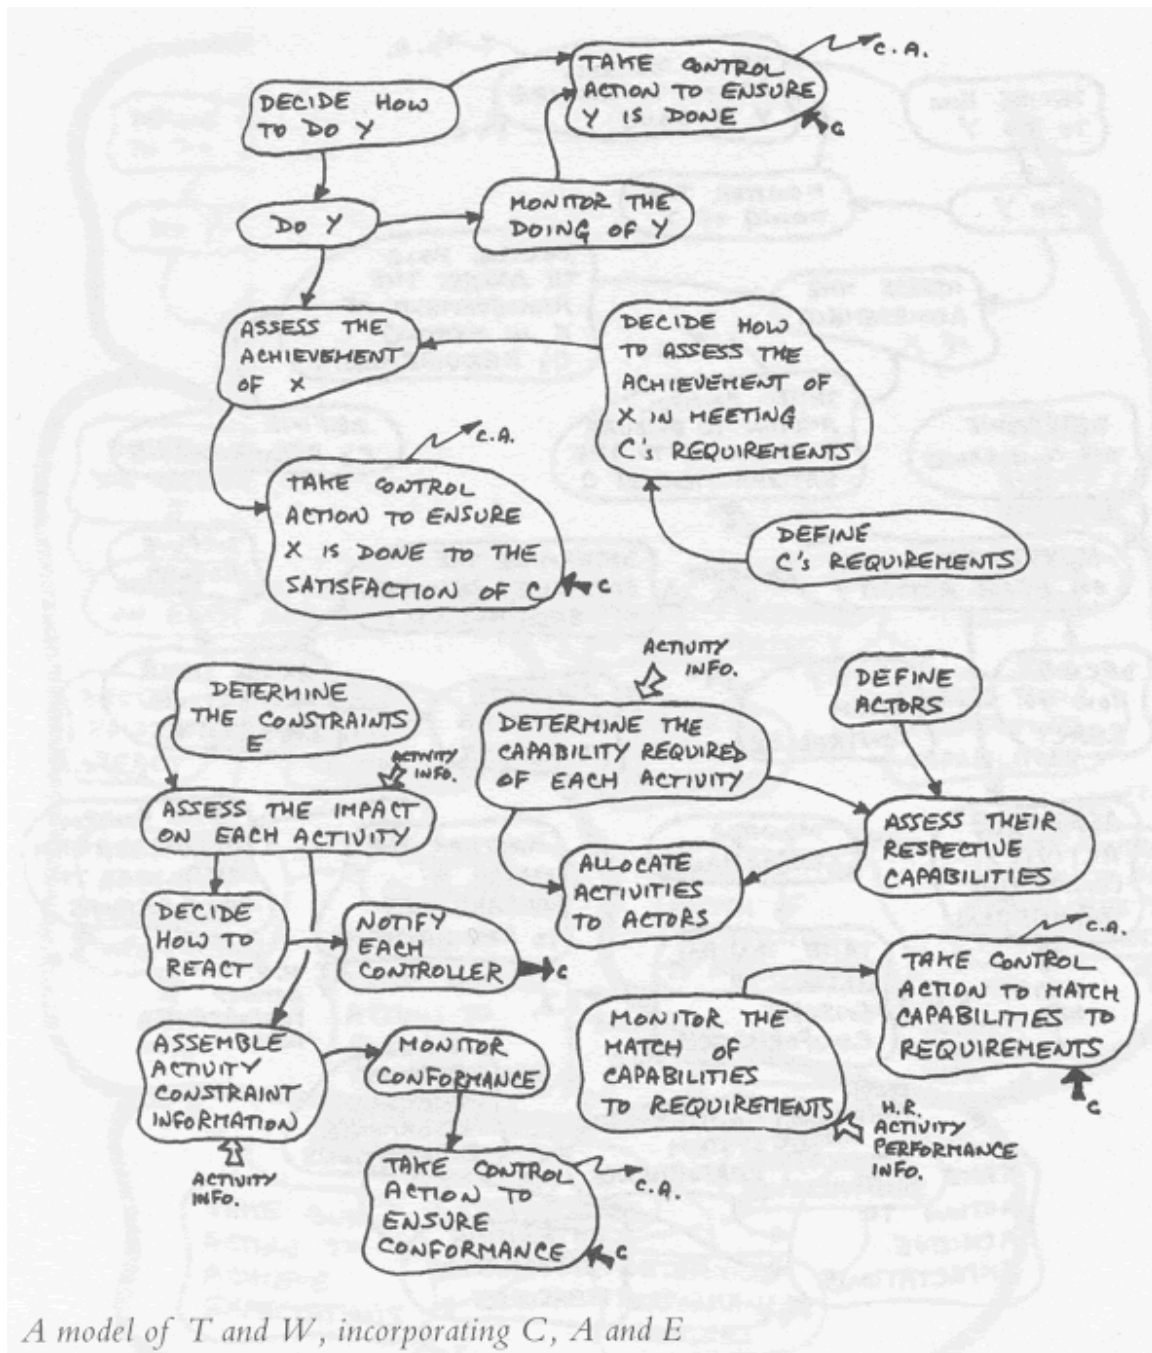 DECIDE HOW
TO DO Y
TAKE CONTROL
ACTION TO ENSURE
Y IS DONE
C.A.
C
DO Y
MONITOR THE
DOING OF Y
ASSESS THE
ACHIEVEMENT
OF X
DECIDE HOW
TO ASSESS THE
ACHIEVEMENT OF
X IN MEETING
C's REQUIREMENTS
C.A.
TAKE CONTROL
ACTION TO ENSURE
X IS DONE TO THE
SATISFACTION OF C
C
DEFINE
C's REQUIREMENTS
DETERMINE
THE CONSTRAINTS
E
ACTIVITY
INFO.
ASSESS THE IMPACT
ON EACH ACTIVITY
DECIDE
HOW TO
REACT
NOTIFY
EACH
CONTROLLER
C
ASSEMBLE
ACTIVITY
CONSTRAINT
INFORMATION
ACTIVITY
INFO.
MONITOR
CONFORMANCE
TAKE CONTROL
ACTION TO
ENSURE
CONFORMANCE
C.A.
C
ACTIVITY
INFO.
DETERMINE THE
CAPABILITY REQUIRED
OF EACH ACTIVITY
DEFINE
ACTORS
ASSESS THEIR
RESPECTIVE
CAPABILITIES
ALLOCATE
ACTIVITIES
TO ACTORS
C.A.
TAKE CONTROL
ACTION TO MATCH
CAPABILITIES TO
REQUIREMENTS
C
MONITOR THE
MATCH OF
CAPABILITIES
TO REQUIREMENTS
H.R.
ACTIVITY
PERFORMANCE
INFO.
A model of T and W, incorporating C, A and E